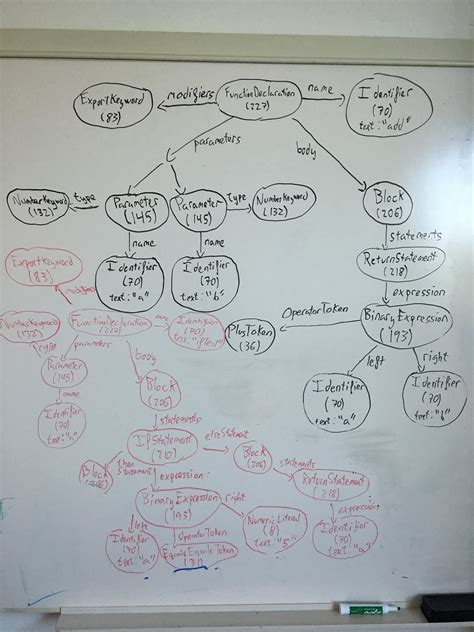 ExportKeyword
(83)
modifiers
FunctionDeclaration
(227)
name
Identifier
(70)
text: "add"
parameters
body
NumberKeyword
(132)
type
Parameter
(145)
Parameter
(145)
Type
NumberKeyword
(132)
Block
(206)
name
name
statements
Identifier
(70)
text: "a"
Identifier
(70)
text: "b"
ReturnStatement
(218)
expression
OperatorToken
PlusToken
(36)
BinaryExpression
(193)
left
right
Identifier
(70)
text: "a"
Identifier
(70)
text: "b"
ExportKeyword
(83)
modifiers
NumberKeyword
(132)
type
FunctionDeclaration
name
Identifier
(70)
parameters
body
Parameter
(145)
name
Identifier
(70)
text: "a"
Block
(206)
statements
IfStatement
(210)
elseStatement
Block
(206)
statements
ReturnStatement
(218)
then
Statement
Block
expression
BinaryExpression
(193)
right
NumericLiteral
(8)
text: "5"
expression
Identifier
(70)
text: "a"
left
Identifier
(70)
text: "a"
OperatorToken
EqualsEqualsToken